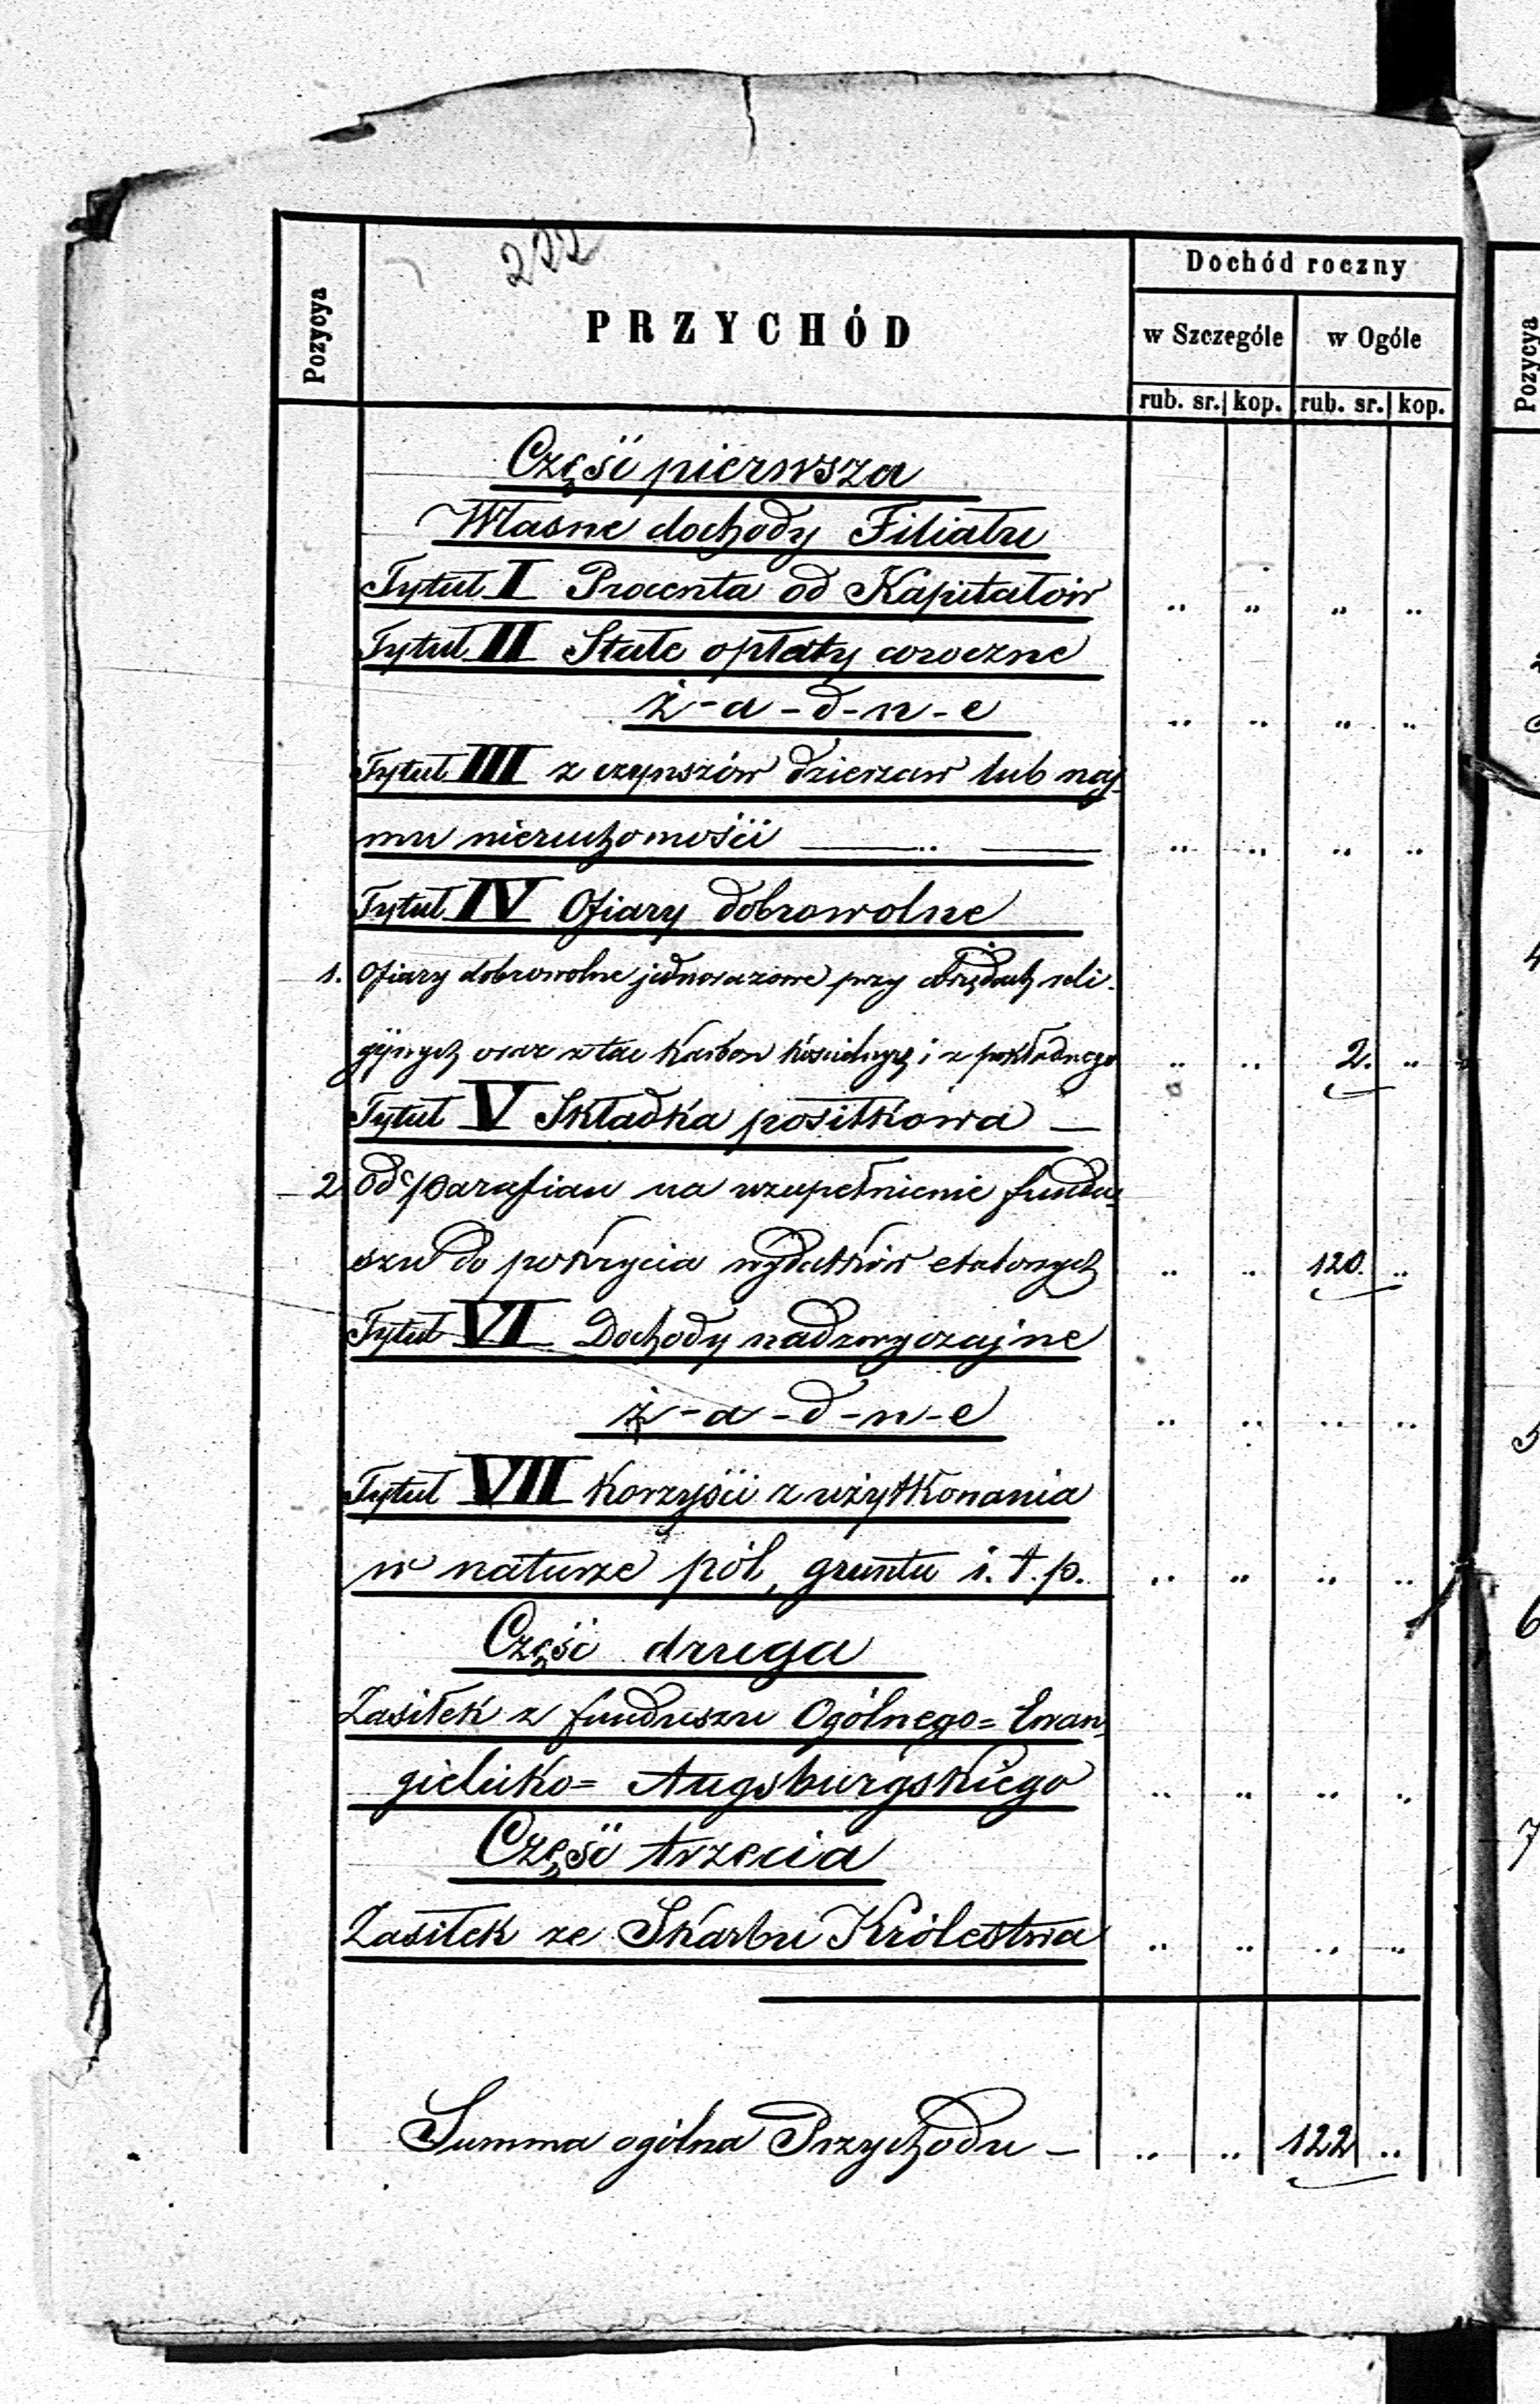 222
Pozycya
PRZYCHÓD
Dochód roczny
w Szczególe w Ogóle
rub. sr. kop. rub. sr. kop.
Część pierwsza
Własne dochody Filiału
Tytuł I Procenta od Kapitałów " " " "
Tytuł II Stałe opłaty coroczne
ż-a-d-n-e " " " "
Tytuł III z czynszów dzierżaw lub naj-
mu nieruchomości " " " " "
Tytuł IV Ofiary dobrowolne
1. Ofiary dobrowolne jednorazowe przy obrzędach reli-
gijnych oraz z tac karbon kościelnych i z pokładnego " " 2. "
Tytuł V Składka posiłkowa —
2 Od parafian na uzupełnienie fundu-
szu do pokrycia wydatków etatowych " " 120. "
Tytuł VI Dochody nadzwyczajne
ż-a-d-n-e " " " "
Tytuł VII Korzyści z użytkowania
w naturze pól, gruntu i. t. p. " " " "
Część druga
Zasiłek z funduszu Ogólnego= Ewan-
gielicko= Augsburgskiego " " " "
Część trzecia
Zasiłek ze Skarbu Królestwa " " " "
Summa ogólna Przychodu — " " 122 "
Pozycya
4
5
6
7